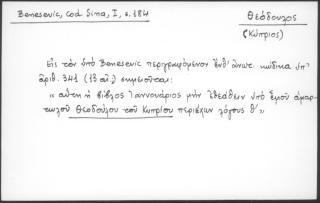 Benesevic, Cod. Sina, I, σ. 184
Θεόδουλος
(Κύπριος)
Εἰς τὸν ὑπὸ Benesevic περιγραφόμενον ἔνθ' ἀνωτ. κώδικα ὑπ'
ἀριθ. 341 (13 αἰ.) σημειοῦται:
" αὕτη ἡ βίβλος Ἰαννουάριος μὴν ἐτέθειν ὑπὸ ἐμοῦ ἁμαρ-
τωλοῦ Θεοδούλου τοῦ Κυπρίου περιέχων λόγους θ' "